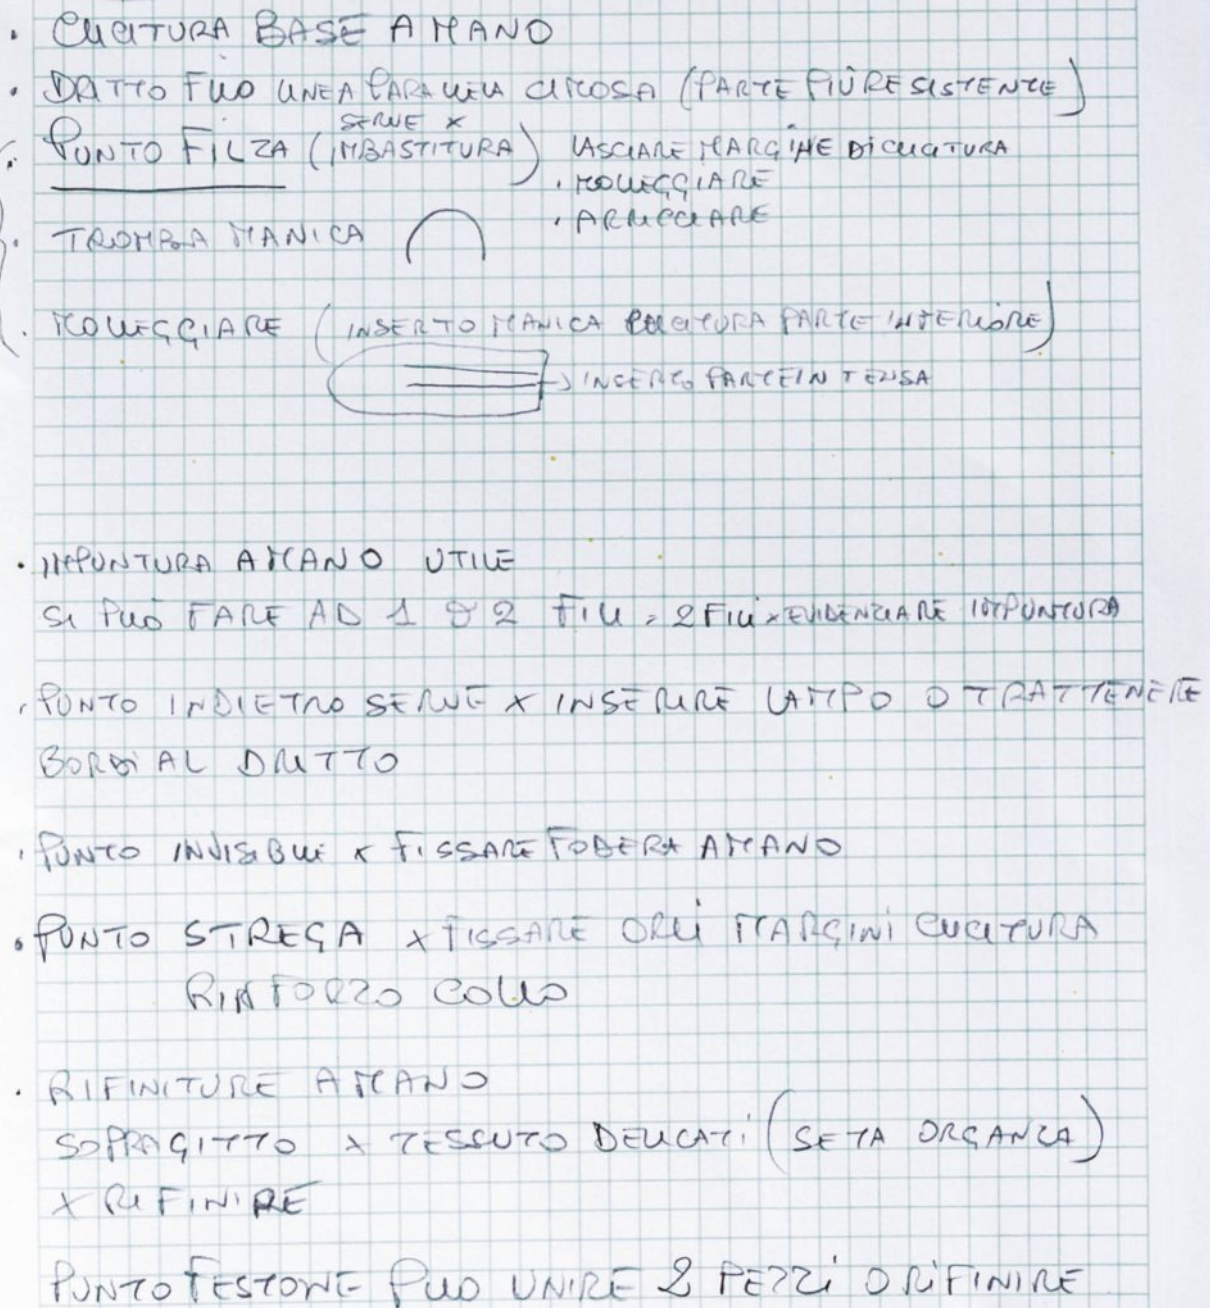 • CUCITURA BASE A MANO
• DRITTO FILO LINEA PARALLELA CIMOSA (PARTE PIÙ RESISTENTE)
SERVE X
• PUNTO FILZA (IMBASTITURA) LASCIARE MARGINE DI CUCITURA
• MOLLEGGIARE
• ARRICCIARE
• TROMBA MANICA
• MOLLEGGIARE (INSERTO MANICA CUCITURA PARTE INFERIORE)
INSERTO PARTE IN TENSA
• IMPUNTURA A MANO UTILE
SI PUÒ FARE AD 1 O 2 FILI = 2 FILI X EVIDENZIARE IMPUNTURA
• PUNTO INDIETRO SERVE X INSERIRE LAMPO O TRATTENERE
BORDI AL DRITTO
• PUNTO INVISIBILE X FISSARE FODERA A MANO
• PUNTO STREGA X FISSARE ORLI MARGINI CUCITURA
RINFORZO COLLO
• RIFINITURE A MANO
SOPRAGITTO X TESSUTO DELICATI (SETA ORGANZA)
X RIFINIRE
PUNTO FESTONE PUO UNIRE 2 PEZZI O RIFINIRE